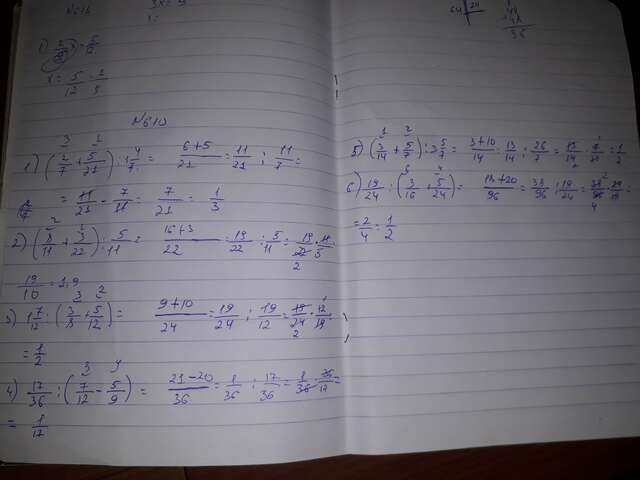 N616
1) 2/5 x = 5/12
x = 5/12 · 2/5
N610
3 1
1) (2/7 + 5/21) : 1 4/7 = 6+5/21 = 11/21 : 11/7 =
= 11/21 · 7/11 = 7/21 = 1/3
2 1
2) (8/11 + 3/22) : 5/11 = 16+3/22 = 19/22 : 5/11 = 19/22 · 11/5
2
19/10 = 1,9
3 2
3) 1 7/12 : (3/8 + 5/12) = 9+10/24 = 19/24 : 19/12 = 19/24 · 12/19
2
= 1/2
3 4
4) 17/36 : (7/12 - 5/9) = 21-20/36 = 1/36 : 17/36 = 1/36 · 36/17 =
= 1/17
64 24
36
1 2
5) (3/14 + 5/7) : 3 5/7 = 3+10/14 = 13/14 : 26/7 = 13/14 · 7/26 = 1/2
6) 19/24 : (3/16 + 5/24) = 18+20/96 = 38/96 : 19/24 = 38/96 · 24/19 =
4
= 2/4 = 1/2